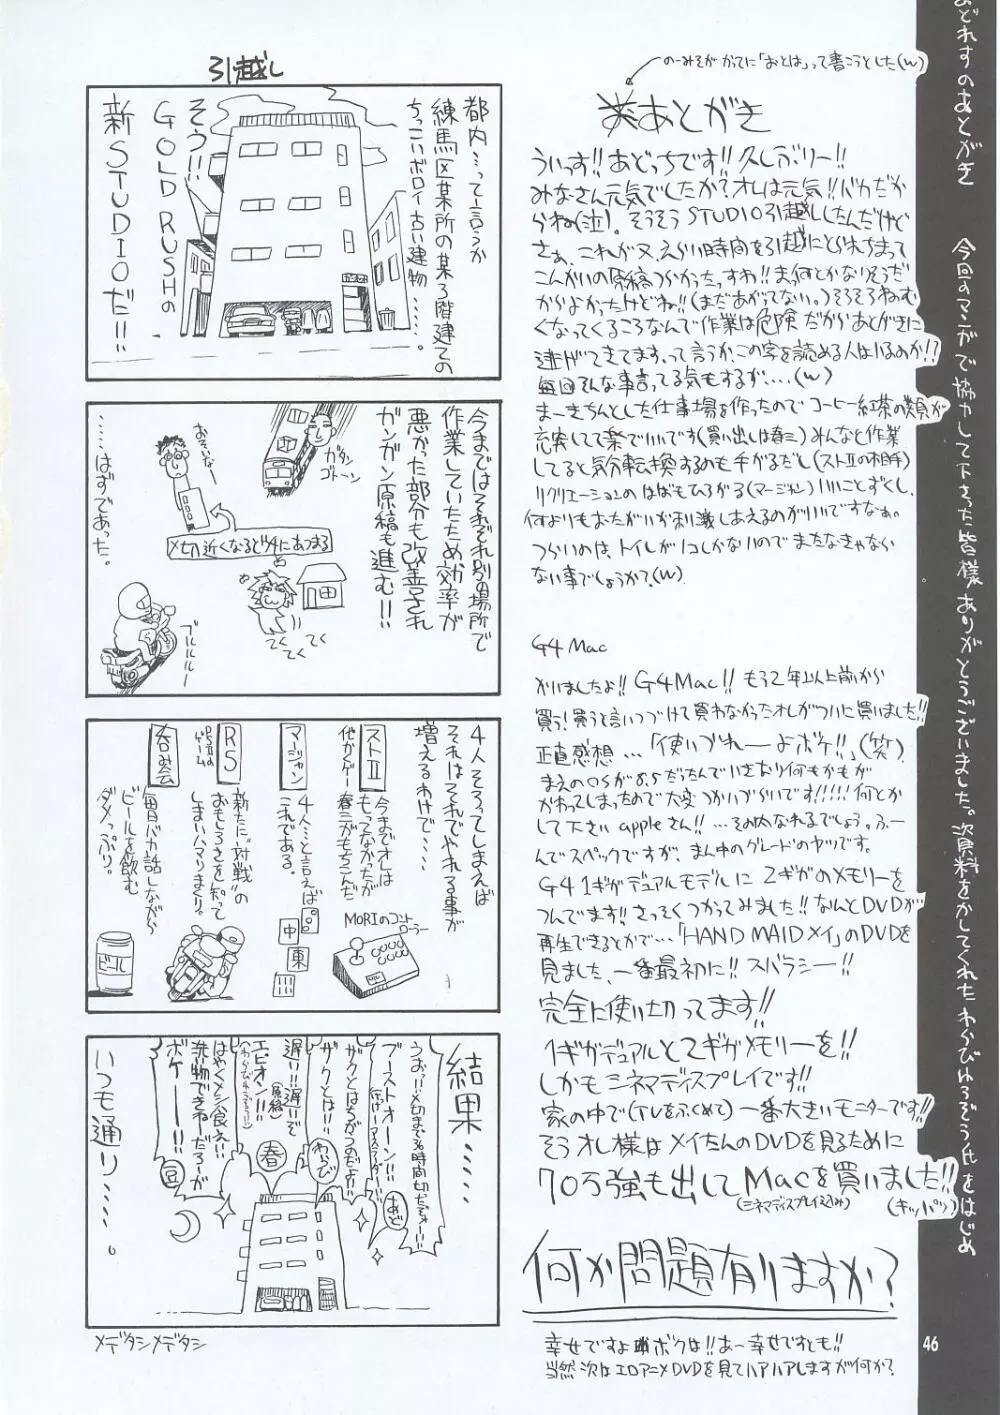 おどれすのあとがき
今回のマンガで協力して下さった皆様ありがとうございました。資料をかしてくれたわらびゅろぞう氏をはじめ
のーみそがかってに「おとは」って書こうとした(w)
※あとがき
ういっす!!あどっちです!!久しぶりー!!
みなさん元気でしたか?オレは元気!!バカだか
らね(泣)。そうそうSTUDIO引越ししたんだけど
さぁ、これが又えらい時間を引越にとられちまって
こんかいの原稿つらかったっすわ!!ま、何とかなりそうだ
からよかったけどね!!(まだあがってない。)そろそろねむ
くなってくるころなんで作業は危険だからあとがきに
逃げてきてます。って言うか、この字を読める人はいるのか!?
毎回そんな事言ってる気もするが....(w)
まーきちんとした仕事場を作ったのでコーヒー紅茶の類が
充実してて楽でいいです(買い出しは春三)みんなと作業
してると気分転換するのも手がるだし(ストIIの相手)
リクリエーションのはばもひろがる(マージャン)いいことずくし、
何よりもおたがいが刺激しあえるのがいいですなぁ。
つらいのは、トイレが1コしかないのでまたなきゃなら
ない事でしょうか?(w)
G4 Mac
かいましたよ!!G4Mac!!もう2年以上前から
買う!買うと言いつづけて買わなかったオレがついに買いました!!
正直感想...「使いづれーよボケ!!」(笑)
まえのOSが8.5だったんでいきなり何もかもが
かわってしまったので大変つかいづらいです!!!!!何とか
して下さいappleさん!!…その内なれるでしょう。ふー
んでスペックですが、まん中のグレードのヤツです。
G4 1ギガデュアルモデルに2ギガのメモリーを
つんでます!!さっそくつかってみました!!なんとDVDが
再生できるとかで…「HAND MAIDメイ」のDVDを
見ました、一番最初に!!スバラシー!!
完全に使い切ってます!!
1ギガデュアルと2ギガメモリーを!!
しかもシネマディスプレイです!!
家の中で(TVをふくめて)一番大きいモニターです!!
そうオレ様はメイたんのDVDを見るために
70万強も出してMacを買いました!!
(シネマディスプレイ込み)
(キッパリ)
何か問題有りますか?
幸せですよボクは!!あー幸せですとも!!
当然次はエロアニメDVDを見てハアハアしますが何か?
46
引越し
都内…って言うか
練馬区某所の某3階建ての
ちっこいボロイ古い建物……。
そう!!
GOLD RUSHの
新STUDIOだ!!
今まではそれぞれ別の場所で
作業していたため効率が
悪かった部分も改善され
ガンガン原稿も進む!!
ガタン
ゴトーン
おそいなー
〆切近くなるとココにあつまる
てくてく
てくてく
ブルルルー
……はずであった。
4人そろってしまえば
それはそれでやれる事が
増えるわけで……
ストII
今までオレは
もってなかったが
春三がもちこんだ
MORIのコントローラー
マージャン
4人…と言えば。
これである。
中
東
RS
PSIIのゲーム
新たに"対戦"の
おもしろさを知って
しまいハマりまくり。
呑み会
毎日バカ話しながら
ビールを飲む
ダメっぷり。
ビール
結果……
うおー!!〆切まで36時間切ったぞォー!!
ブーストオーン!!
あど
ザクとはちがうのだよ!!
ザクとは!!
わらび
遅い!!遅いぞ
(原稿)
エピオン!!
春
はやくメシ食え!!
洗い物できねーだろーが
ボケーー!!
豆
いつも通り……。
メデタシメデタシ